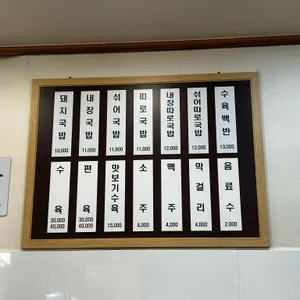 돼지국밥 10,000
내장국밥 11,000
섞어국밥 11,000
따로국밥 11,000
내장따로국밥 12,000
섞어따로국밥 12,000
수육백반 13,000
수육 30,000 40,000
편육 30,000 40,000
맛보기수육 15,000
소주 4,000
맥주 4,000
막걸리 4,000
음료수 2,000